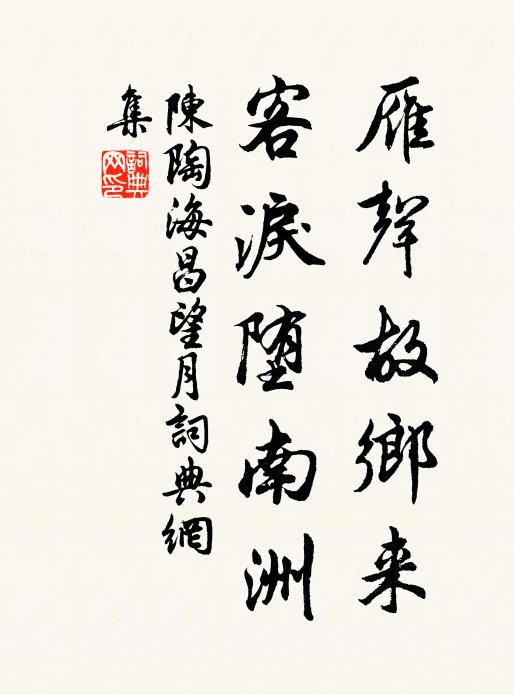 雁聲故鄉来
客淚堕南洲
陳陶海昌望月詞典網
集
詞典
网印